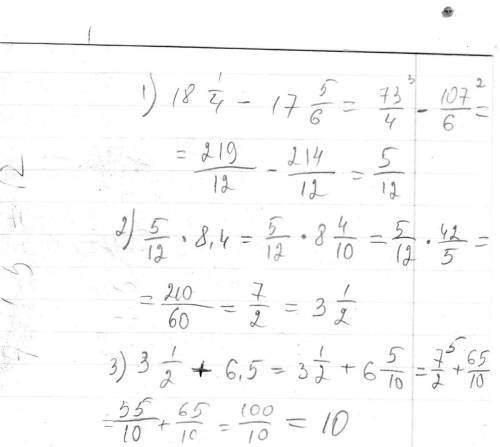 1) 18 1/4 - 17 5/6 = 73/4 ³ - 107/6 ² =
= 219/12 - 214/12 = 5/12
2) 5/12 · 8,4 = 5/12 · 8 4/10 = 5/12 · 42/5 =
= 210/60 = 7/2 = 3 1/2
3) 3 1/2 + 6,5 = 3 1/2 + 6 5/10 = 7/2 ⁵ + 65/10
= 55/10 + 65/10 = 100/10 = 10